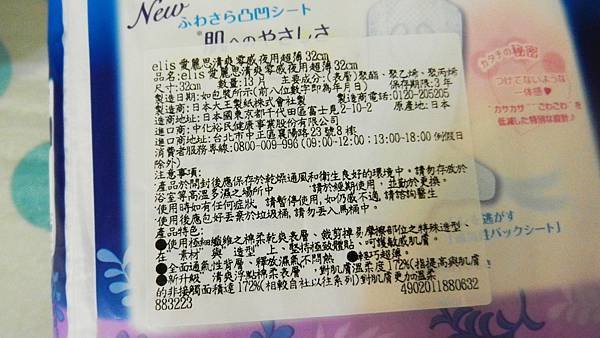 New
ふわさら凸凹シート
肌へのやさしさ
elis 愛麗思清爽零感夜用超薄32cm
品名:elis 愛麗思清爽零感夜用超薄32cm
尺寸:32cm 數量:13片 主要成分:(表層)聚酯、聚乙烯、聚丙烯
製造日期:如包裝所示(前八位數字即為年月日) 保存期限:3年
製造商:日本大王製紙株式會社製 製造商電話:0120-205205
造商地址:日本國東京都千代田區富士見2-10-2 原產地:日本
進口商:中化裕民健康事業股份有限公司
進口商地址:台北市中正區襄陽路23號8樓
消費者服務專線:0800-009-996(09:00-12:00;13:00-18:00 例假日
除外)
注意事項:
產品於開封後應保存於乾燥通風和衛生良好的環境中,請勿存放於
浴室等高溫多濕之場所中 請於經期使用,並勤於更換。
使用時如有任何症狀,請暫停使用,如仍感不適,請諮詢醫生
使用後應包好丟棄於垃圾桶,請勿丟入馬桶中。
產品特色:
●使用極細纖維之棉柔乾爽表層、裁剪掉易摩擦部位之特殊造型、
在"素材"與"造型"上、堅持極致體貼、呵護敏感肌膚。
●全面透氣性背層、釋放濕氣不悶熱 ●輕巧超薄。
●新升級"清爽浮點棉柔表層",對肌膚溫柔度172%(指提高與肌膚
的非接觸面積達172%(相較自社以往系列)對肌膚更加溫柔
883223 4902011880632
カタチの秘密
つけてないような
一体感♥
"カサカサ""ごわごわ"を
低減した特別な設計♪
逃がす
バックシート】